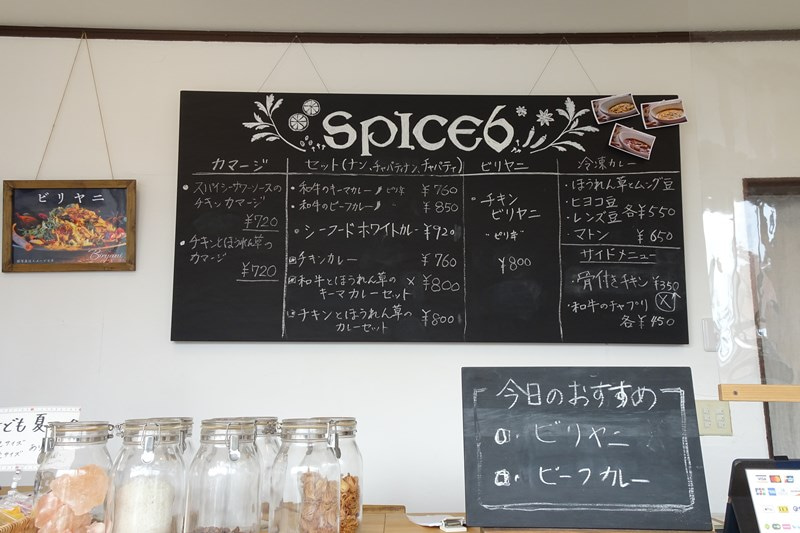 SPICE6
カマージ
・スパイシーサワーソースの
チキン カマージ
¥720
・チキンとほうれん草の
カマージ
¥720
セット(ナン、チャパティナン、チャパティ)
・和牛のキーマカレー ピリ辛 ¥760
・和牛のビーフカレー 〃 ¥850
・シーフードホワイトカレー ¥920
チキンカレー ¥760
和牛とほうれん草の × ¥800
キーマカレーセット
チキンとほうれん草の ¥800
カレーセット
ビリヤニ
・チキン
ビリヤニ
¥800
冷凍カレー
・ほうれん草とムング豆
・ヒヨコ豆
・レンズ豆 各¥550
・マトン ¥650
サイドメニュー
・骨付きチキン ¥350
X
・和牛のチャプリ
各¥450
ビリヤニ
Biryani
今日のおすすめ
ビリヤニ
ビーフカレー
ども 夏